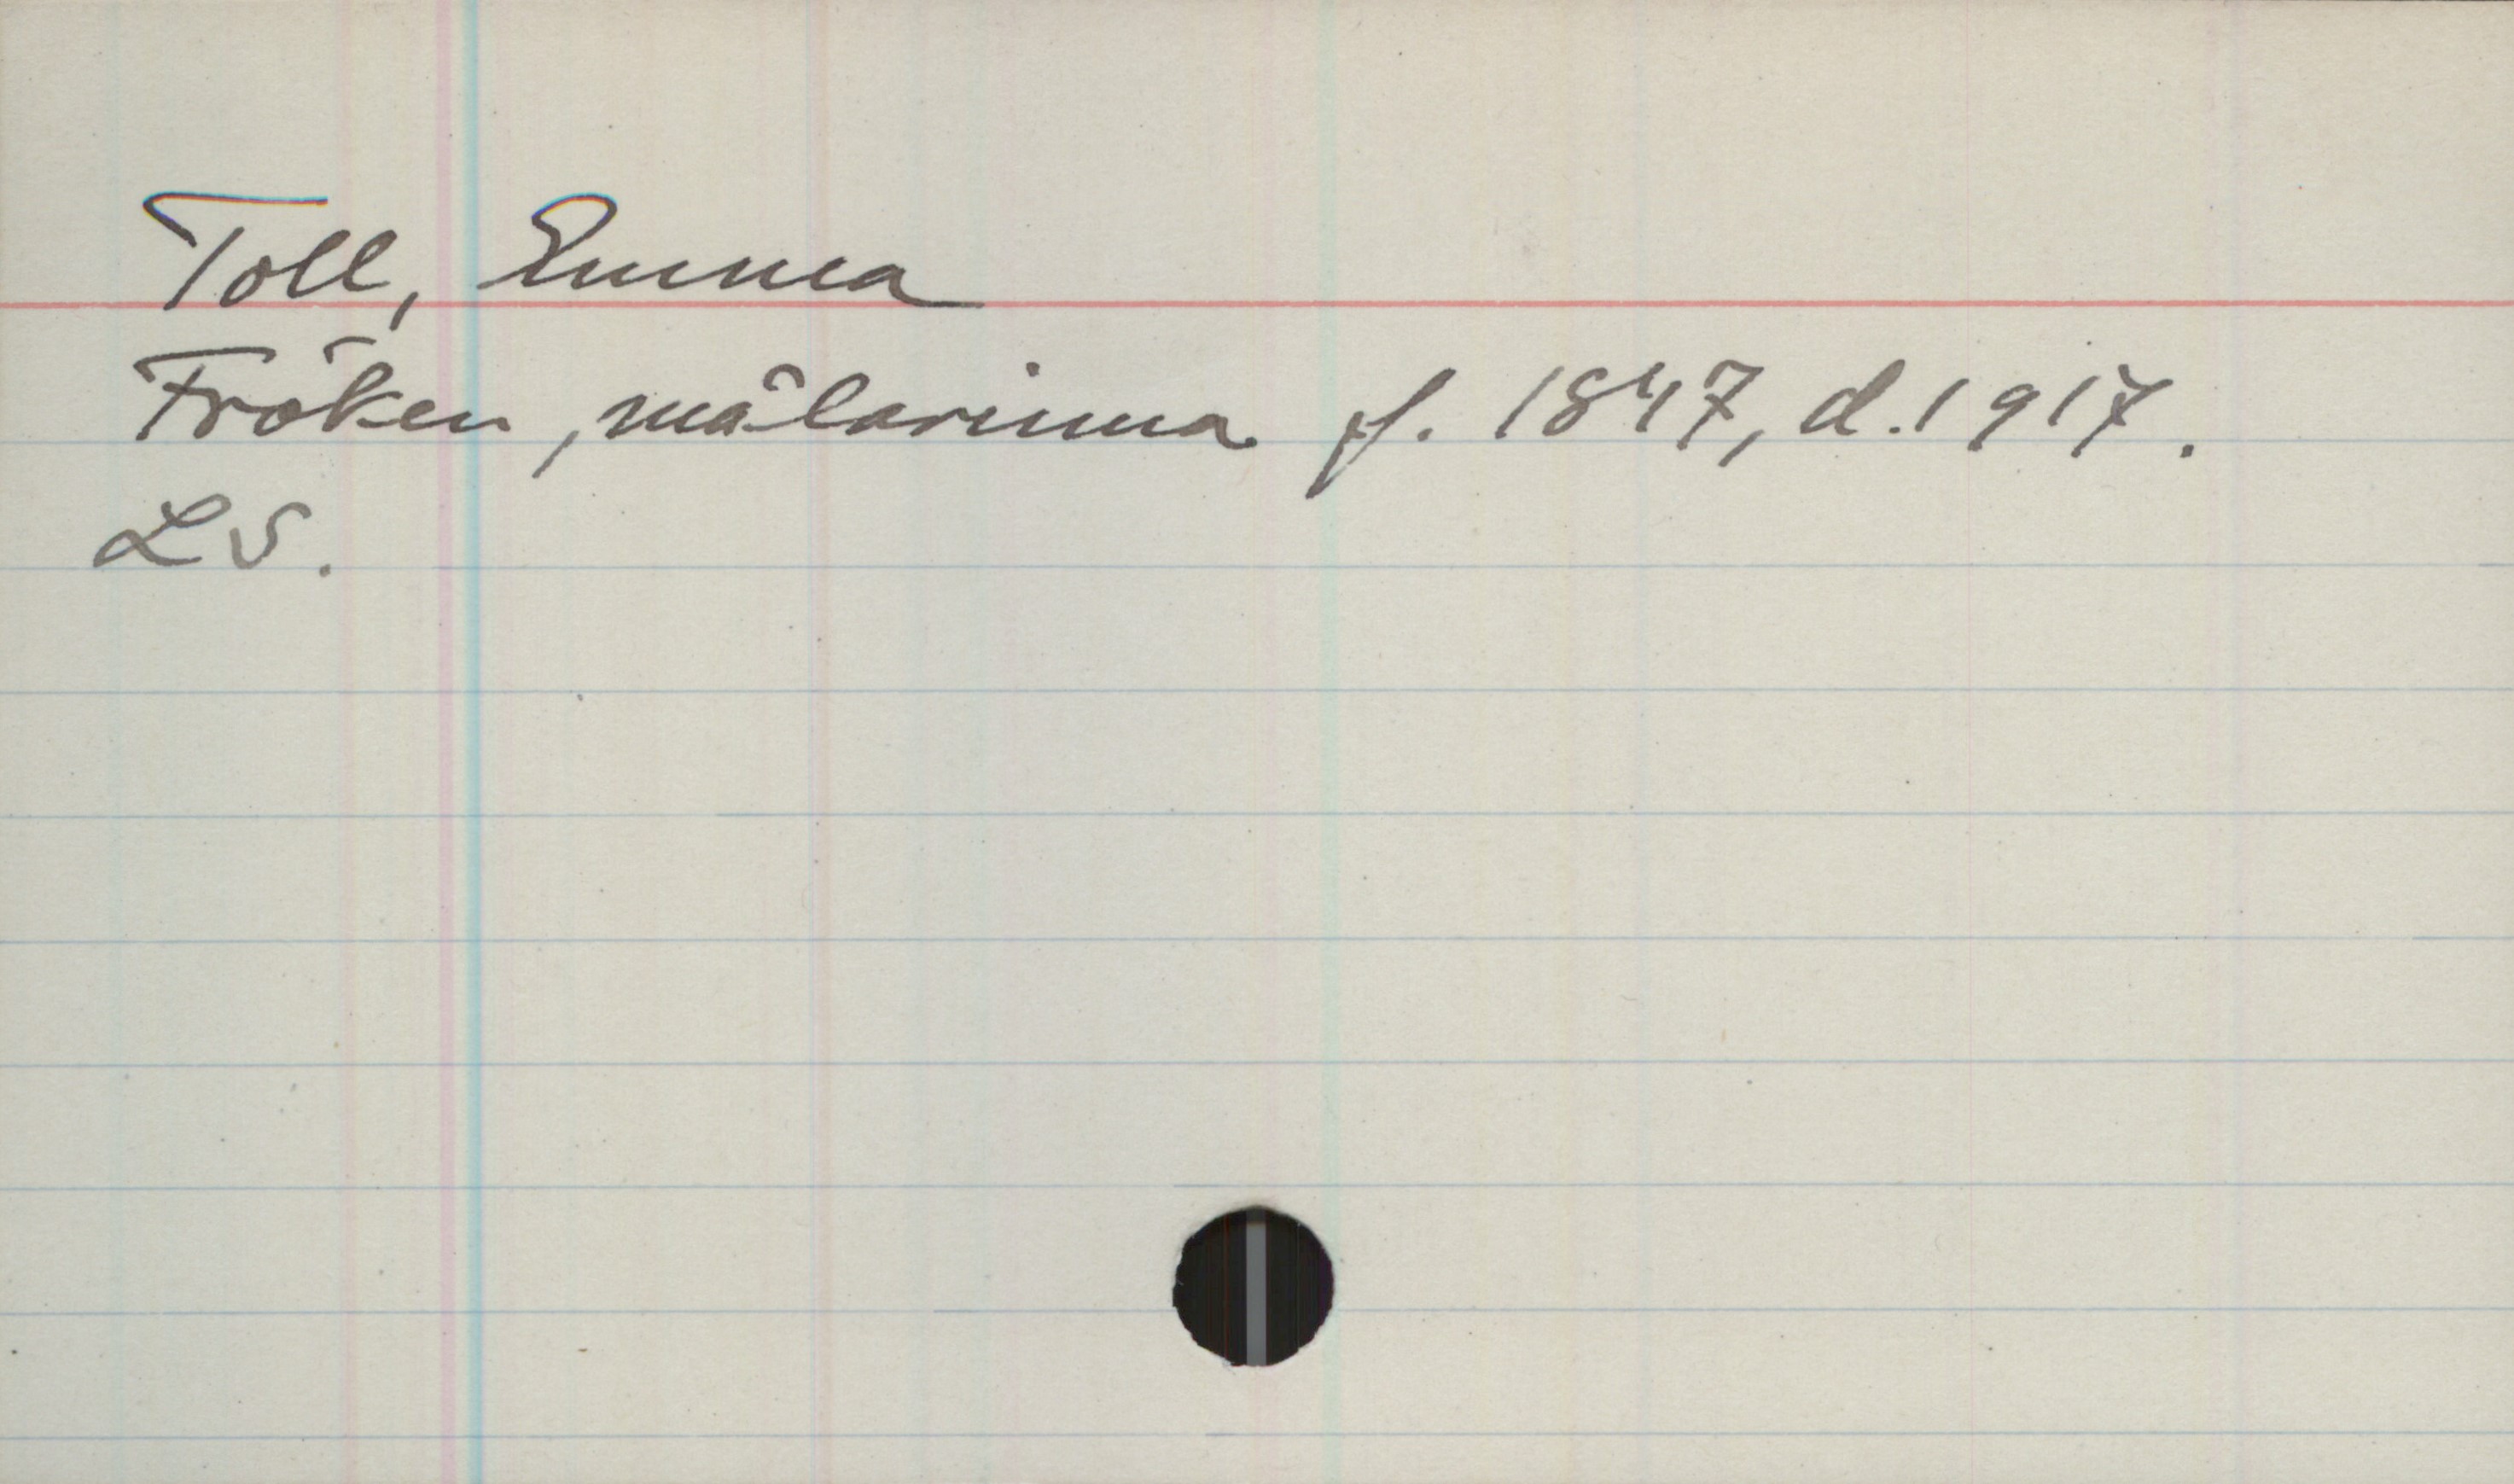 Toll, Emma
Fröken, målarinna f. 1847, d. 1917.
LS.